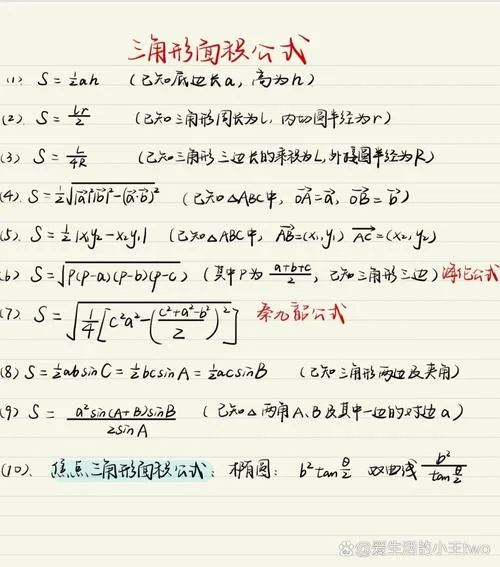 三角形面积公式
(1). S=½ah (已知底边长a, 高为h)
(2). S=Lr/2 (已知三角形周长为L, 内切圆半径为r)
(3) S=L/4R (已知三角形三边长的乘积为L,外接圆半径为R)
(4). S=½√|a⃗|²|b⃗|²-(a⃗·b⃗)² (已知△ABC中, OA⃗=a⃗, OB⃗=b⃗)
(5). S=½|x₁y₂-x₂y₁| (已知△ABC中, AB⃗=(x₁,y₁) AC⃗=(x₂,y₂)
(6) S=√P(P-a)(P-b)(P-c) (其中P为 a+b+c/2, 已知三角形三边) 海伦公式
(7) S=√¼[c²a²-(c²+a²-b²/2)²] 秦九韶公式
(8) S=½absinC=½bcsinA=½acsinB (已知三角形两边及夹角)
(9) S= a²sin(A+B)sinB/2sinA (已知△两角A、B及其中一边的对边a)
(10). 焦点三角形面积公式: 椭圆: b²tanθ/2 双曲线 b²/tanθ/2
知乎 @爱生活的小王two